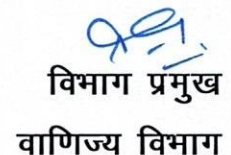 विभाग प्रमुख
वाणिज्य विभाग